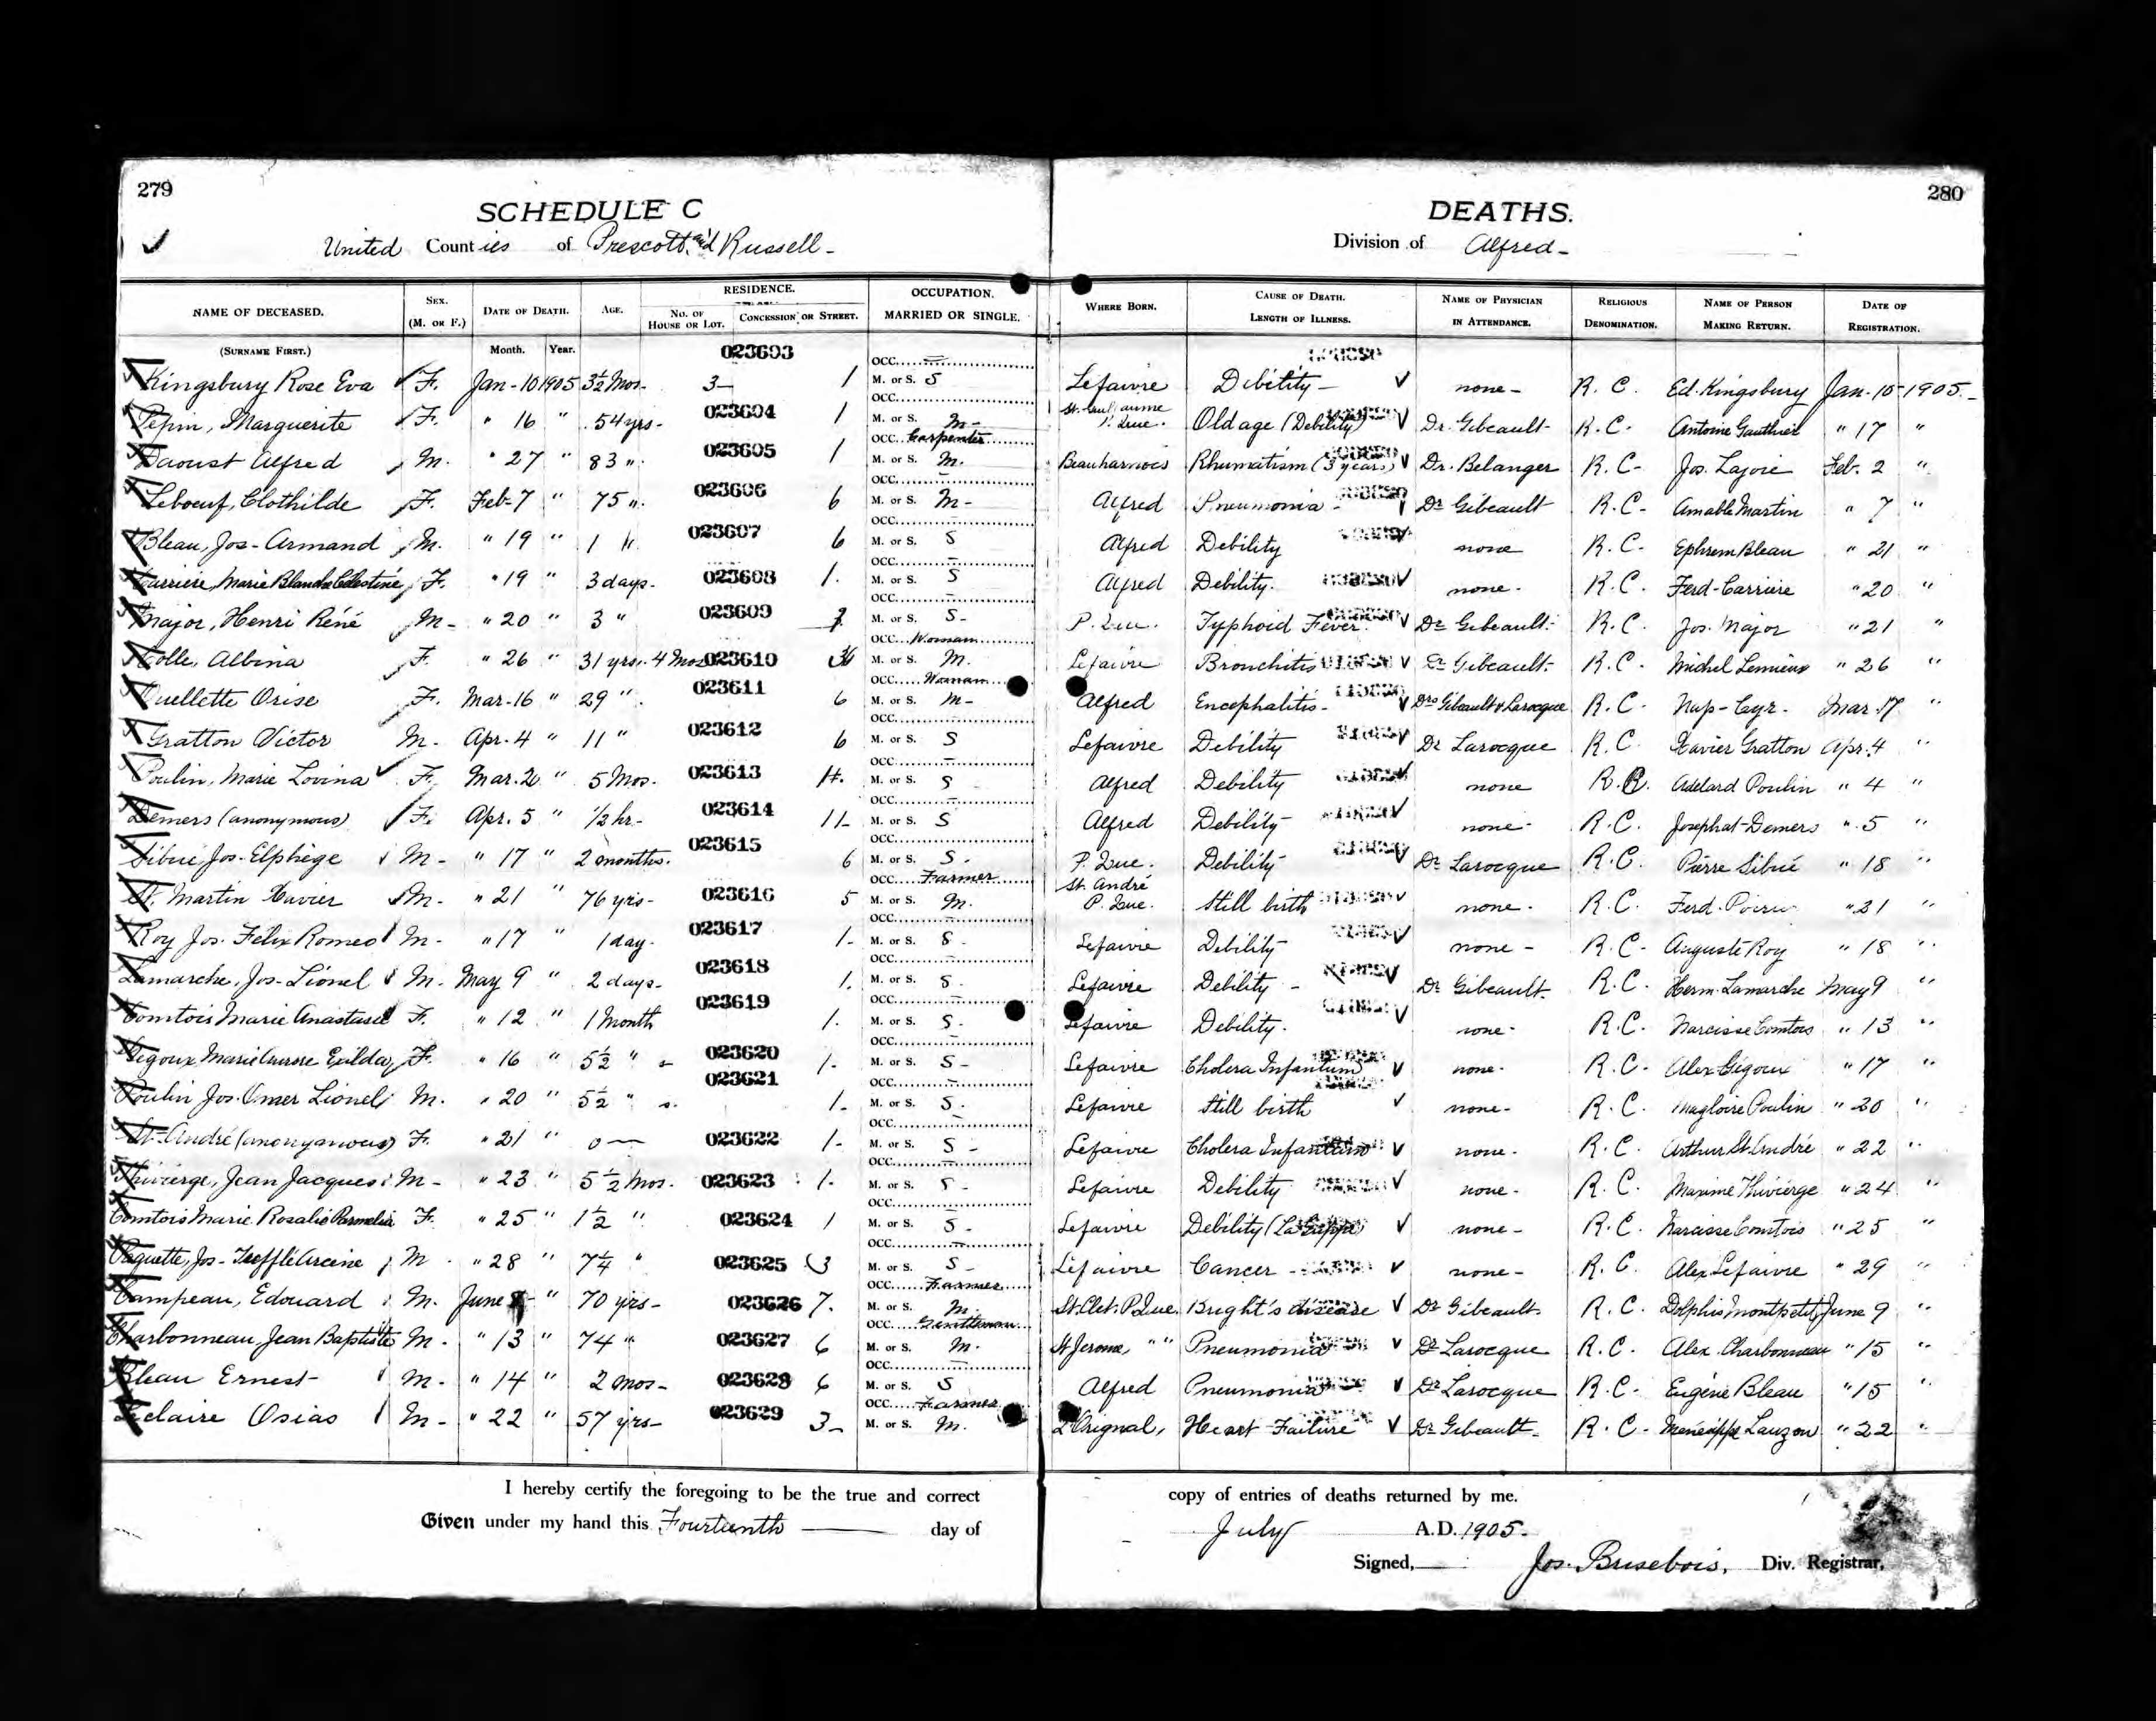 279
280
SCHEDULE C
DEATHS.
United Counties of Prescott and Russell -
Division of Alfred -
NAME OF DECEASED. SEX. (M. OR F.) DATE OF DEATH. AGE. RESIDENCE. NO. OF HOUSE OR LOT. CONCESSION OR STREET. OCCUPATION. MARRIED OR SINGLE. WHERE BORN. CAUSE OF DEATH. LENGTH OF ILLNESS. NAME OF PHYSICIAN IN ATTENDANCE. RELIGIOUS DENOMINATION. NAME OF PERSON MAKING RETURN. DATE OF REGISTRATION.
(SURNAME FIRST.) Month. Year.
Kingsbury Rose Eva F. Jan-10 1905 3½ Mos- 023603 3- 1 OCC. M. or S. S Lefaivre Debility- none- R. C. Ed. Kingsbury Jan-10-1905-
Pepin, Marguerite F. " 16 " 54 yrs- 023604 1 OCC. M. or S. M- Old age (Debility) Dr. Gibeault- R.C- Antoine Gauthier " 17 "
Daoust Alfred M. " 27 " 83 " 023605 1 OCC. Carpenter M. or S. M. Beauharnois Rhumatism (3 years) Dr. Belanger R.C- Jos. Lajoie Feb. 2 "
Leboeuf, Clothilde F. Feb-7 " 75 " 023606 6 OCC. M. or S. M- Alfred Pneumonia- Dr Gibeault R.C- Amable Martin " 7 "
Bleau, Jos-Armand M. " 19 " 1 " 023607 6 OCC. M. or S. S Alfred Debility none R.C- Ephrem Bleau " 21 "
Carriere, Marie Blanche Celestine F. " 19 " 3 days- 023608 1. OCC. M. or S. S Alfred Debility. none- R.C. Ferd-Carriere " 20 "
Major, Henri Réné M- " 20 " 3 " 023609 OCC. M. or S. S- P. Que. Typhoid Fever Dr Gibeault- R.C. Jos. Major " 21 "
Albina F. " 26 " 31 yrs. 4 Mos 023610 OCC. Woman M. or S. M. Lefaivre Bronchitis Dr Gibeault- R.C- Michel Lemieux " 26 "
Ouellette Orise F. Mar-16 " 29 " 023611 6 OCC. Woman M. or S. M- Alfred Encephalitis- Drs Gibeault & Larocque R.C- Nap-Cyr- Mar. 17 "
Gratton Victor M. Apr-4 " 11 " 023612 6 OCC. M. or S. S Lefaivre Debility Dr Larocque R.C. Xavier Gratton Apr. 4 "
Poulin, Marie Lovina F. Mar. 2 " 5 Mos. 023613 OCC. M. or S. S Alfred Debility none Adelard Poulin " 4 "
Demers (anonymous) F. Apr. 5 " ½ hr- 023614 11- OCC. M. or S. S Alfred Debility- none- R.C. Josephat-Demers " 5 "
Sibué Jos-Elphège M- " 17 " 2 months. 023615 6 OCC. M. or S. S- P. Que. Debility- Dr Larocque R.C. Pierre Sibué " 18 "
St. Martin Xavier M- " 21 " 76 yrs- 023616 5 OCC. Farmer M. or S. M. St. André P. Que. Still birth none- R.C- Ferd. " 21 "
Roy Jos. Félix Romeo M- " 17 " 1 day- 023617 1- OCC. M. or S. S- Lefaivre Debility- none- R.C- Auguste Roy " 18 "
Lamarche, Jos-Lionel M. May 9 " 2 days- 023618 1. OCC. M. or S. S. Lefaivre Debility- Dr Gibeault- R.C. Herm. Lamarche May 9 "
Comtois Marie Anastasie F. " 12 " 1 Month 023619 1. OCC. M. or S. S. Lefaivre Debility. none- R.C. Narcisse Comtois " 13 "
Marie Aurore Exilda F. " 16 " 5½ " 023620 1- OCC. M. or S. S- Lefaivre Cholera Infantum none- R.C- Alex " 17 "
Poulin Jos. Omer Lionel M. " 20 " 5½ " 023621 1- OCC. M. or S. S. Lefaivre Still birth none- R.C. Magloire Poulin " 20 "
St-André (anonymous) F. " 21 " 0 — 023622 1- OCC. M. or S. S- Lefaivre Cholera Infantum none- R.C. Arthur St. André " 22 "
Thivierge, Jean Jacques M- " 23 " 5½ Mos. 023623 1- OCC. M. or S. S- Lefaivre Debility none- R.C. Maxime Thivierge " 24 "
Comtois Marie Rosalie Parmelia F. " 25 " 1½ " 023624 1 OCC. M. or S. S- Lefaivre Debility (La Grippe) none- R.C. Narcisse Comtois " 25 "
Paquette, Jos- M " 28 " " 023625 3 OCC. M. or S. S- Lefaivre Cancer- none- R.C. Alex Lefaivre " 29 "
Campeau, Edouard M. June " 70 yrs- 023626 7. OCC. Farmer M. or S. M. St. Clet. P. Que. Bright's disease Dr Gibeault- R.C. Delphis Montpetit June 9 "
Charbonneau, Jean Baptiste M- " 13 " 74 " 023627 6 OCC. Gentleman M. or S. M. St Jerome, " " Pneumonia Dr Larocque R.C. Alex. Charbonneau " 15 "
Bleau Ernest- M- " 14 " 2 mos- 023628 6 OCC. M. or S. S Alfred Pneumonia Dr Larocque R.C- Eugène Bleau " 15 "
Leclaire Osias M- " 22 " 57 yrs- 023629 3- OCC. Farmer M. or S. M. L'Orignal, Heart Failure Dr Gibeault- R.C- Lauzon " 22 "
I hereby certify the foregoing to be the true and correct copy of entries of deaths returned by me.
Given under my hand this Fourteenth day of July A.D. 1905-
Signed, Jos. Brisebois, Div. Registrar.